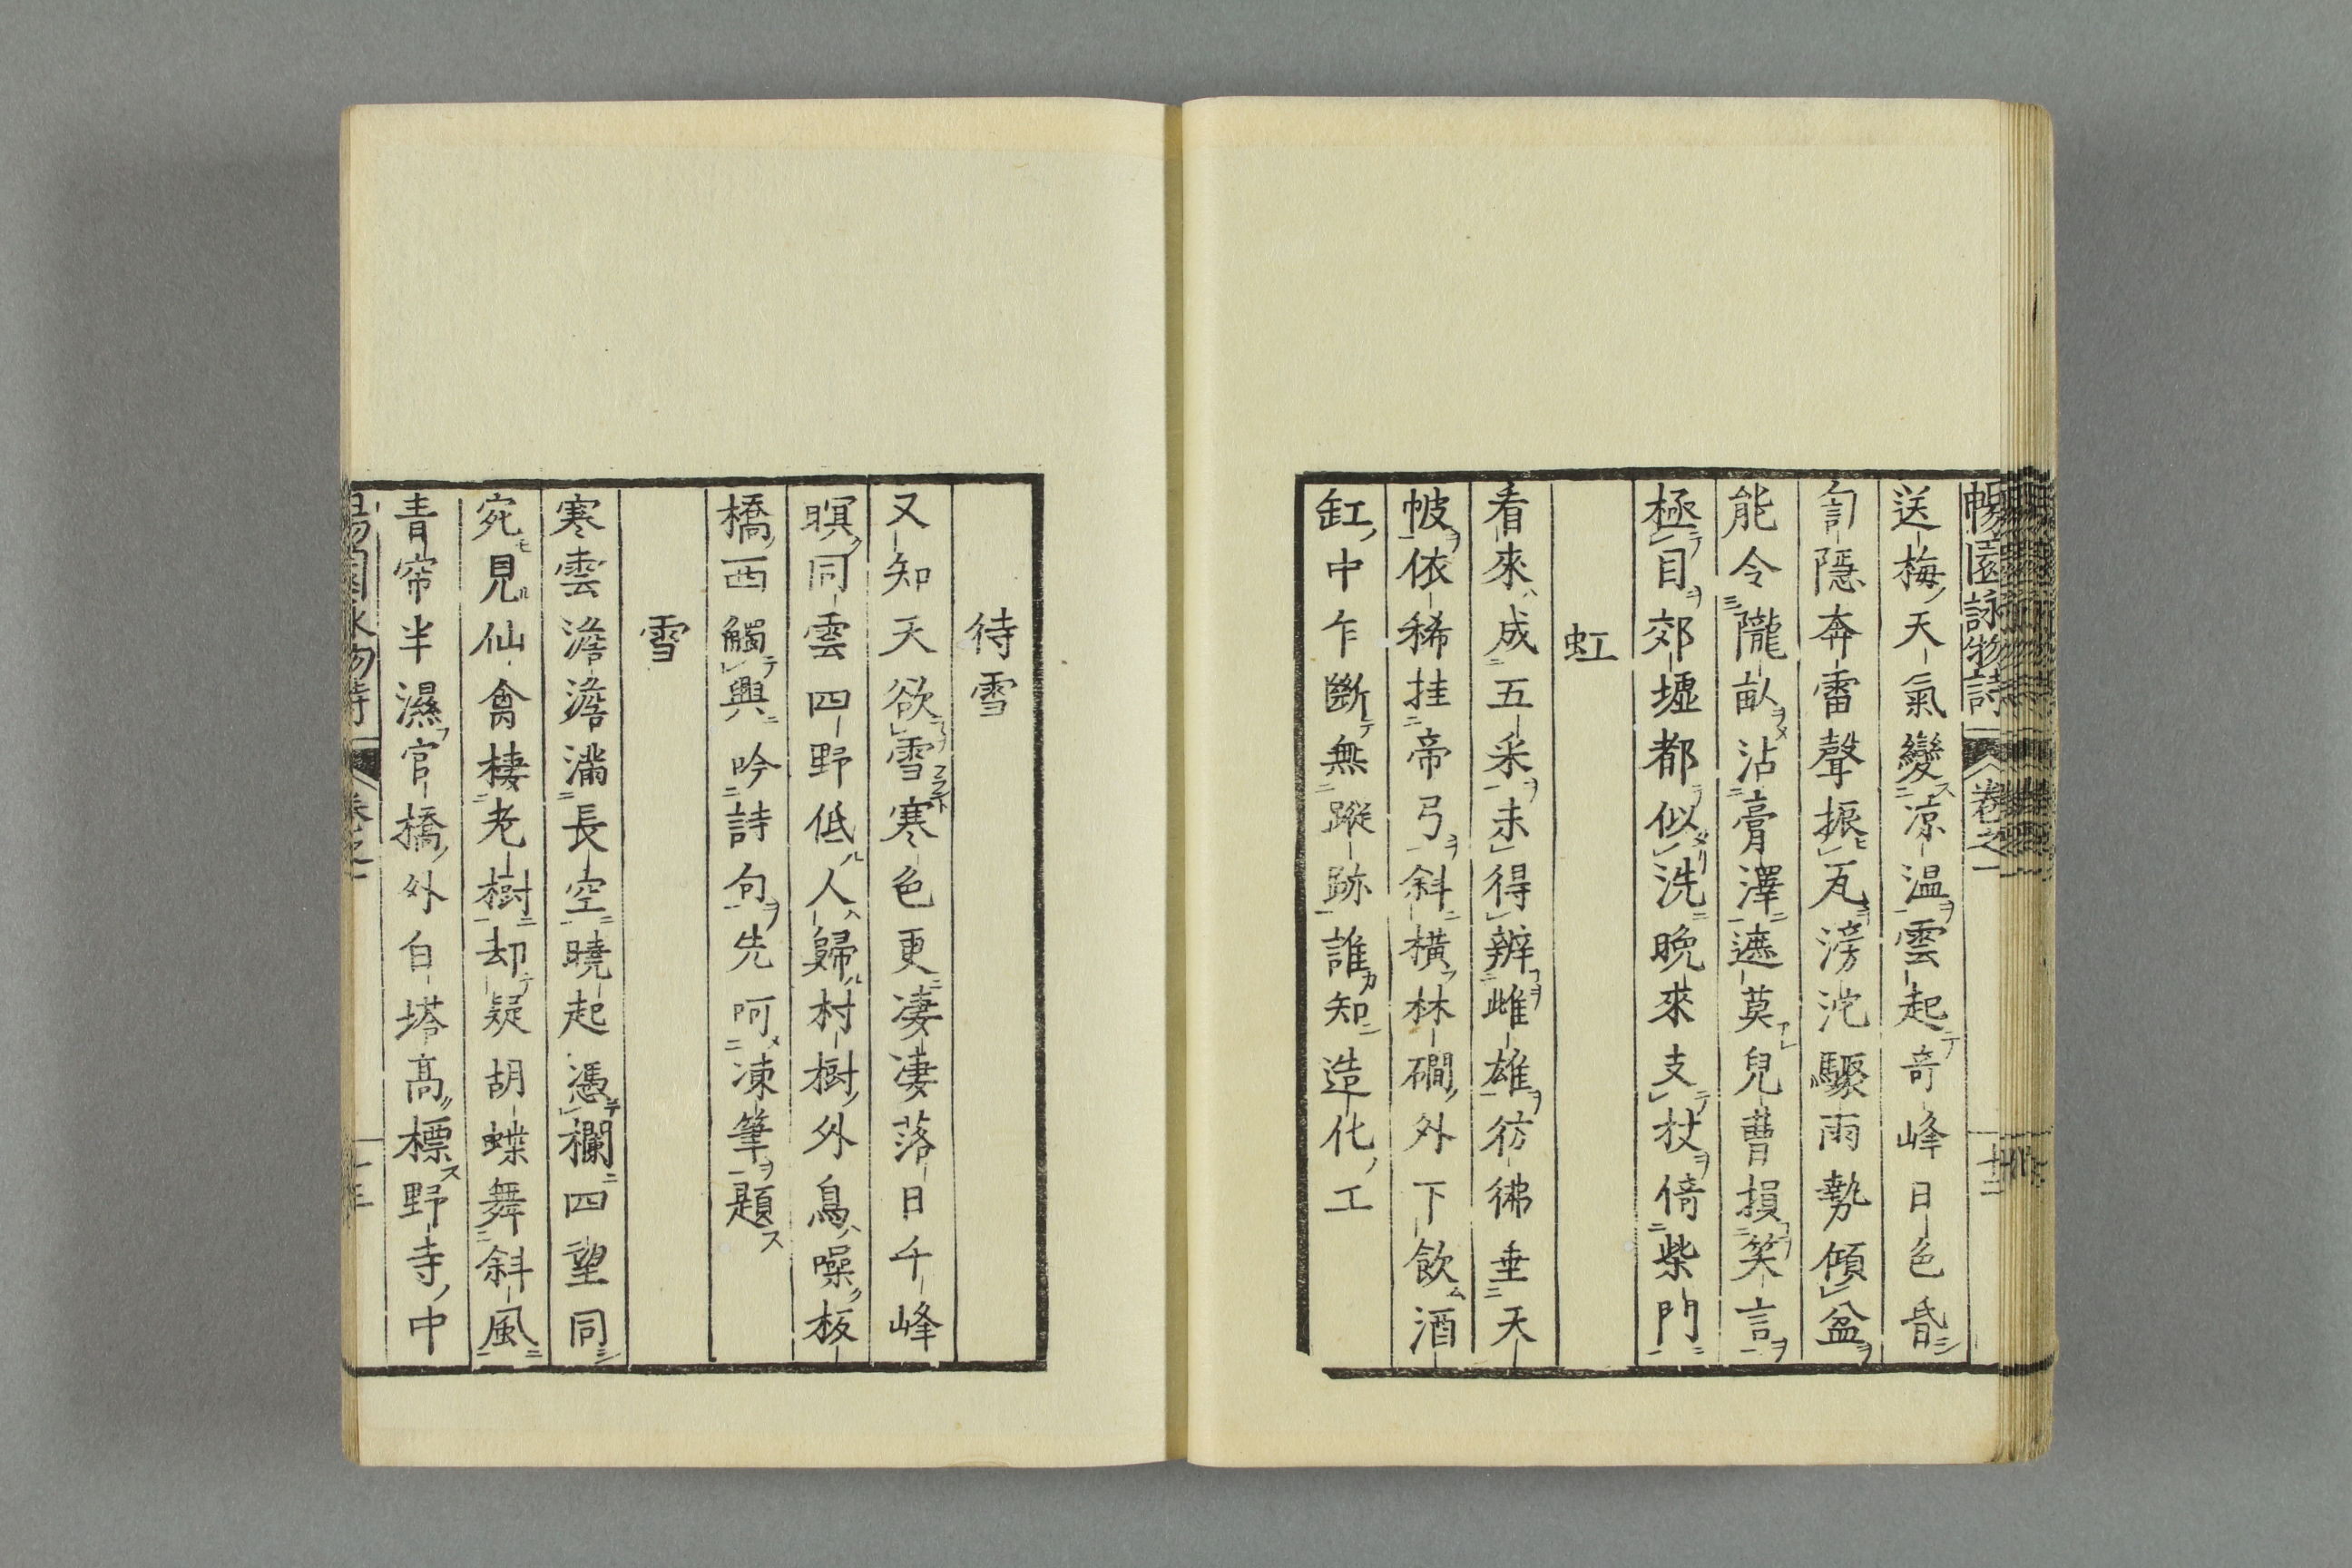 暢園詠物詩 卷之一 十二
送梅天氣變涼温雲起奇峰日色昏
訇隱奔雷聲振瓦滂沱驟雨勢傾盆
能令隴畝沾膏澤遮莫兒曹損笑言
極目郊墟都似洗晩來支杖倚柴門
虹
看來成五采未得辨雌雄彷彿垂天
帔依稀挂帝弓斜橫林磵外下飮酒
缸中乍斷無蹤跡誰知造化工
待雪
又知天欲雪寒色更凄凄落日千峰
暝同雲四野低人歸村樹外鳥噪板
橋西觸興吟詩句先呵凍筆題
雪
寒雲澹澹滿長空曉起憑欄四望同
宛見仙禽棲老樹却疑胡蝶舞斜風
青帘半濕官橋外白塔高標野寺中